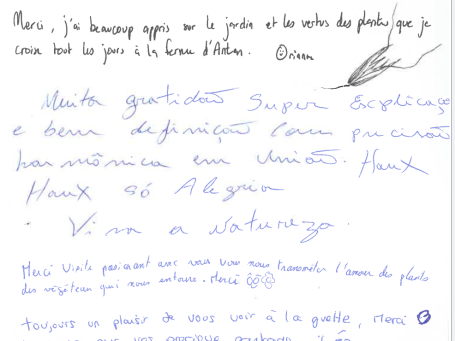 Merci, j'ai beaucoup appris sur le jardin et les vertus des plantes que je
croise tout les jours à la ferme d'Antan. Orianne
Muita gratidão Super Explicaço
e bem definição com precisão
harmônica em União. Haux
Haux só Alegria
Viva a Natureza.
Merci Visite passionant avec vous vous nous transmetez l'amour des plantes
des végéteau qui nous entoure. Merci
toujours un plaisir de vous voir à la guette, Merci